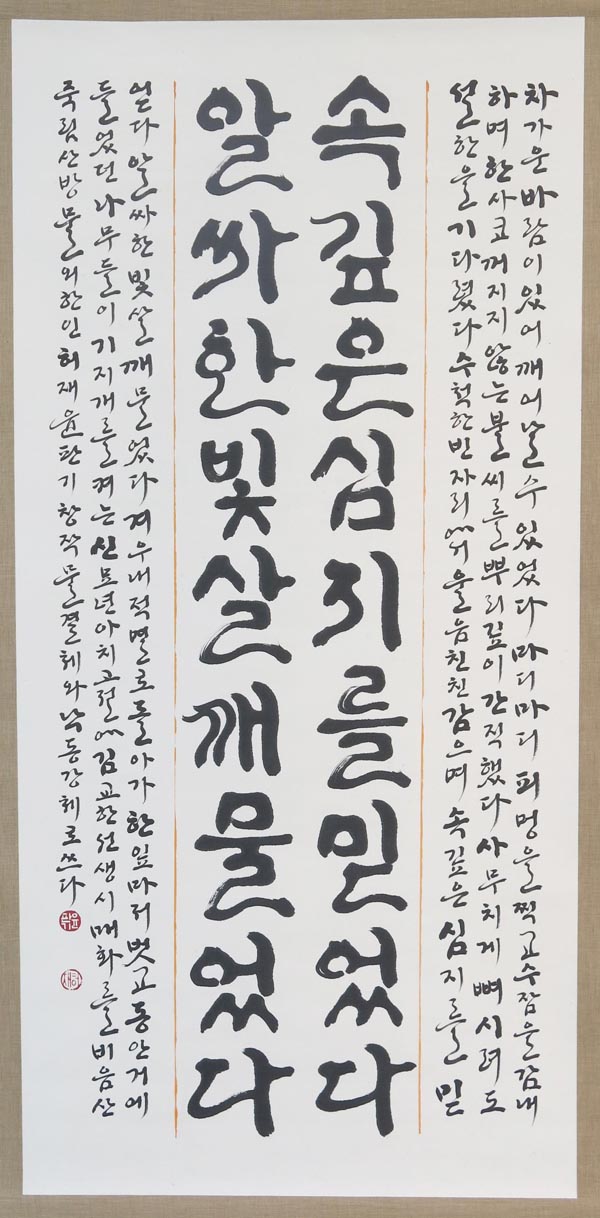 차가운 바람이 있어 깨어날 수 있었다 마디마디 피멍을 찍고 수잠을 감내
하며 한사코 꺼지지 않는 불씨를 뿌리 깊이 간직했다 사무치게 뼈 시려도
설한을 기다렸다 수척한 빈 자리 겨울을 음친친 감으며 속 깊은 심지를 믿
속 깊은 심지를 믿었다
알싸한 빛살 깨물었다
었다 알싸한 빛살 깨물었다 겨우내 적멸로 돌아가 한 잎마저 벗고 동안거에
들었던 나무들이 기지개를 켜는 신묘년 아치고절 김교한 선생 시 매화를 비음산
죽림산방 물외한인 허재 윤판기 창작 물결체와 낙동강체로 쓰다